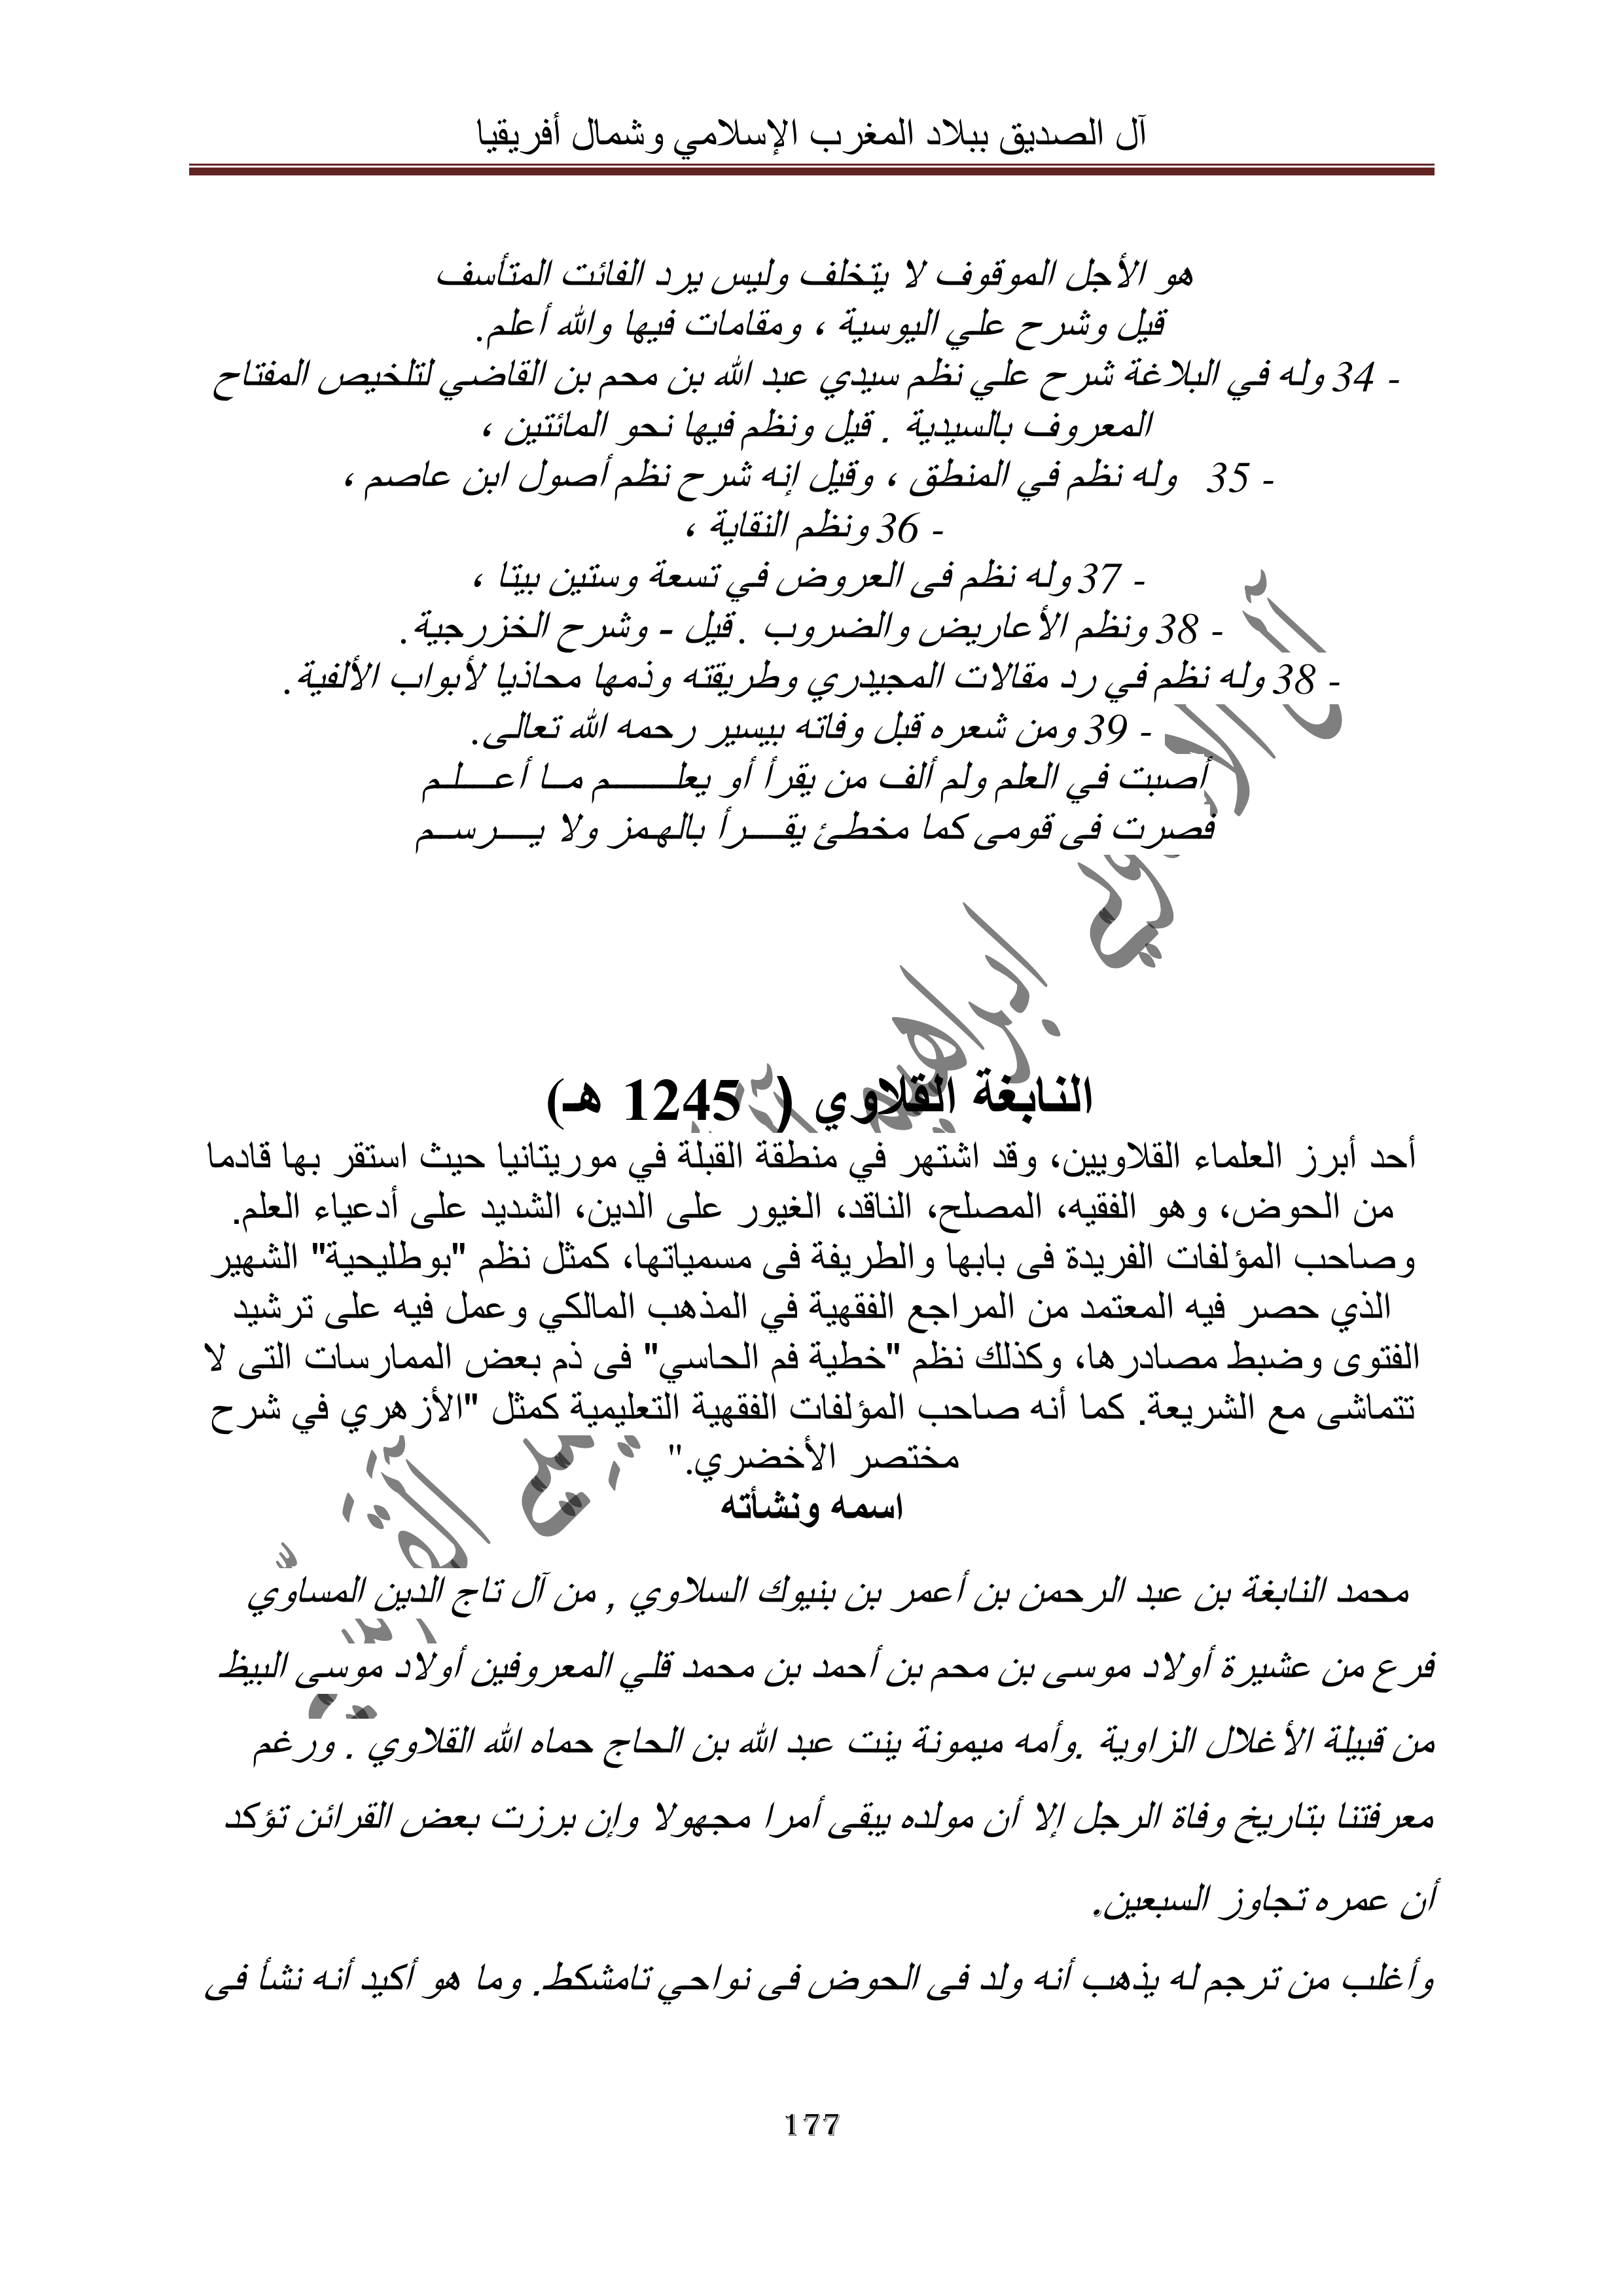 آل الصديق ببلاد المغرب الإسلامي وشمال أفريقيا
هو الأجل الموقوف لا يتخلف وليس يرد الفائت المتأسف
قيل وشرح علي اليوسية ، ومقامات فيها والله أعلم.
- 34 وله في البلاغة شرح علي نظم سيدي عبد الله بن محم بن القاضي لتلخيص المفتاح
المعروف بالسيدية . قيل ونظم فيها نحو المائتين ،
- 35 وله نظم في المنطق ، وقيل إنه شرح نظم أصول ابن عاصم ،
- 36 ونظم النقاية ،
- 37 وله نظم فى العروض في تسعة وستين بيتا ،
- 38 ونظم الأعاريض والضروب . قيل - وشرح الخزرجية.
- 38 وله نظم في رد مقالات المجيدري وطريقته وذمها محاذيا لأبواب الألفية.
- 39 ومن شعره قبل وفاته بيسير رحمه الله تعالى.
أصبت في العلم ولم ألف من يقرأ أو يعلـــــــم مــا أعــــلـم
فصرت فى قومى كما مخطئ يقــــرأ بالهمز ولا يــــرســم
النابغة القلاوي ( 1245 هـ)
أحد أبرز العلماء القلاويين، وقد اشتهر في منطقة القبلة في موريتانيا حيث استقر بها قادما
من الحوض، وهو الفقيه، المصلح، الناقد، الغيور على الدين، الشديد على أدعياء العلم.
وصاحب المؤلفات الفريدة فى بابها والطريفة فى مسمياتها، كمثل نظم "بوطليحية" الشهير
الذي حصر فيه المعتمد من المراجع الفقهية في المذهب المالكي وعمل فيه على ترشيد
الفتوى وضبط مصادرها، وكذلك نظم "خطية فم الحاسي" فى ذم بعض الممارسات التى لا
تتماشى مع الشريعة. كما أنه صاحب المؤلفات الفقهية التعليمية كمثل "الأزهري في شرح
مختصر الأخضري."
اسمه ونشأته
محمد النابغة بن عبد الرحمن بن أعمر بن بنيوك السلاوي , من آل تاج الدين المساوي
فرع من عشيرة أولاد موسى بن محم بن أحمد بن محمد قلي المعروفين أولاد موسى البيظ
من قبيلة الأغلال الزاوية .وأمه ميمونة ينت عبد الله بن الحاج حماه الله القلاوي . ورغم
معرفتنا بتاريخ وفاة الرجل إلا أن مولده يبقى أمرا مجهولا وإن برزت بعض القرائن تؤكد
أن عمره تجاوز السبعين.
وأغلب من ترجم له يذهب أنه ولد فى الحوض فى نواحي تامشكط. وما هو أكيد أنه نشأ فى
177